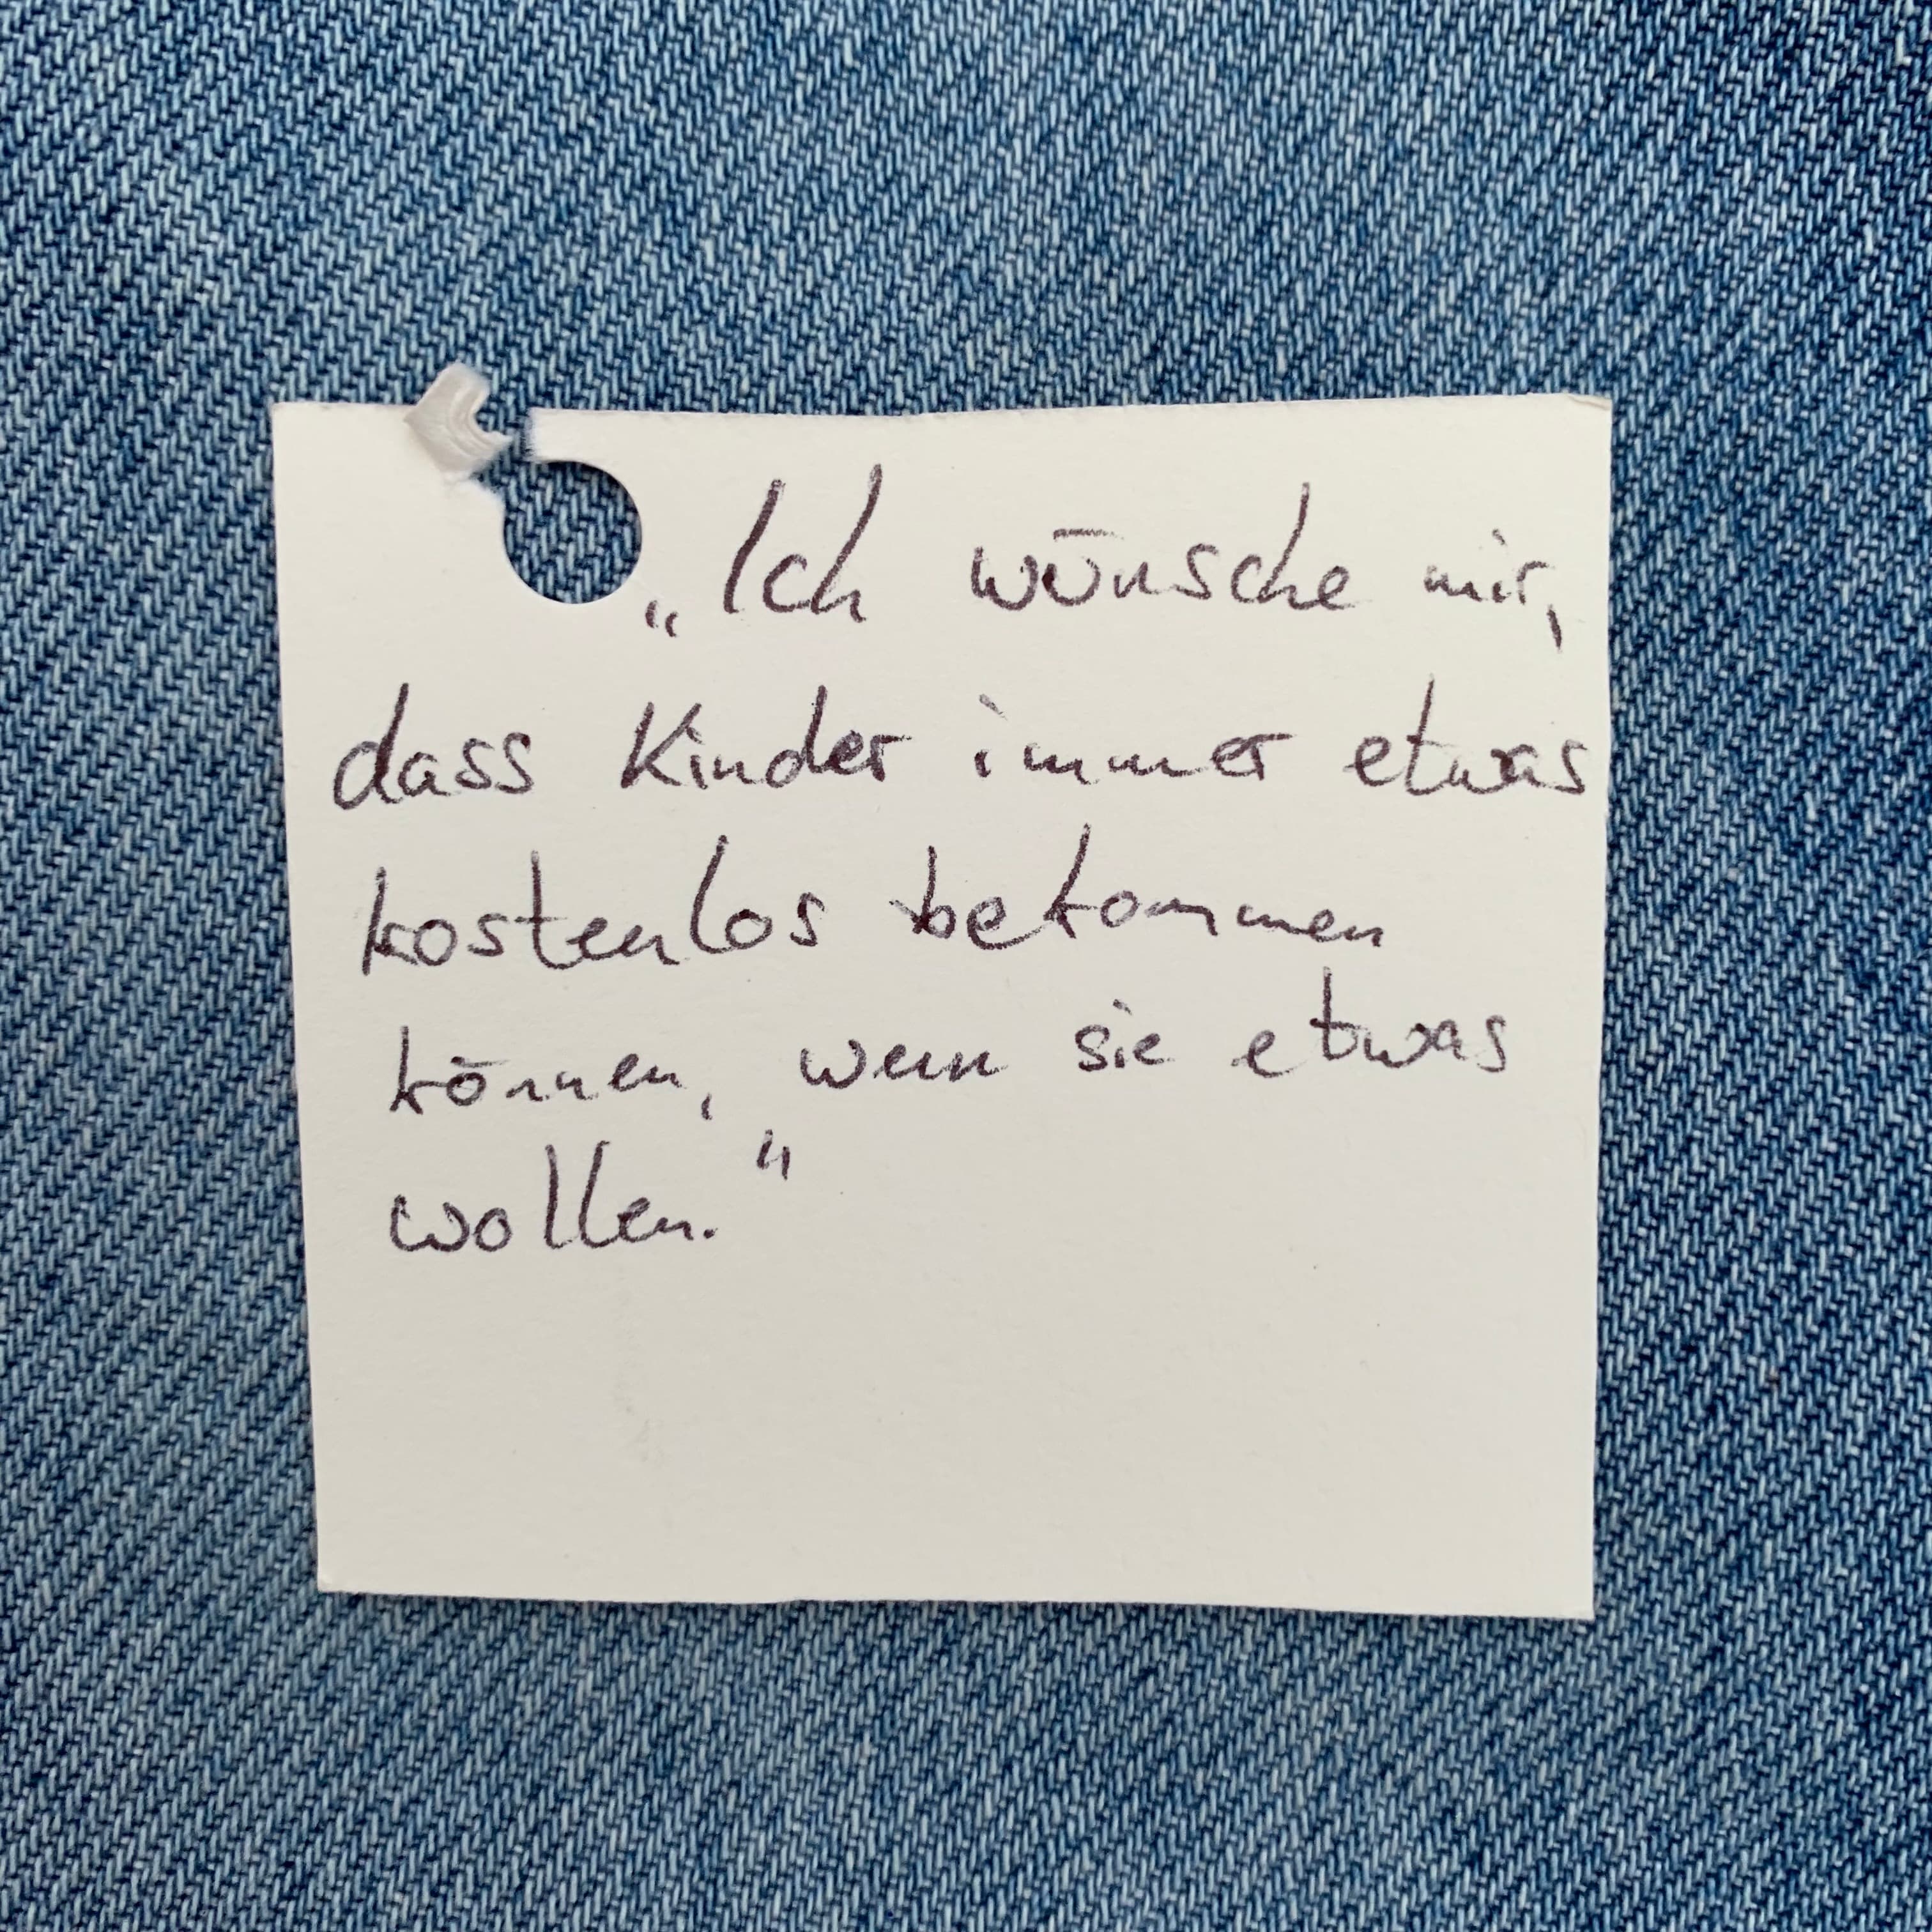 „Ich wünsche mir,
dass Kinder immer etwas
kostenlos bekommen
können, wenn sie etwas
wollen.“